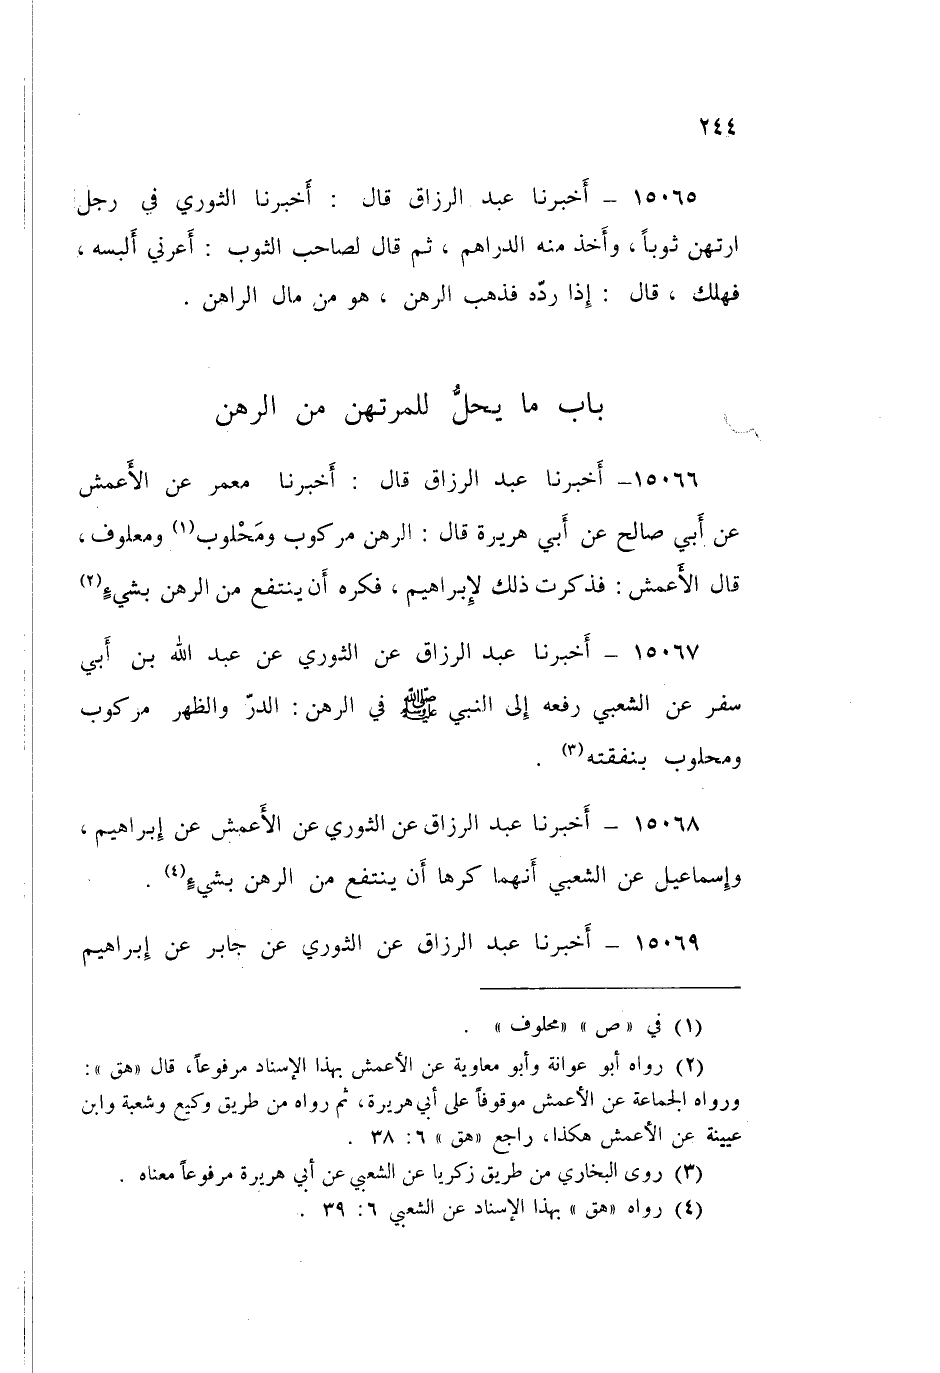 ٢٤٤
١٥٠٦٥ - أَخبرنا عبد الرزاق قال : أَخبرنا الثوري في رجل
ارتهن ثوباً ، وأَخذ منه الدراهم ، ثم قال لصاحب الثوب : أَعرني أَلبسه ،
فهلك ، قال : إذا ردّه فذهب الرهن ، هو من مال الراهن .
باب ما يحلُّ للمرتهن من الرهن
١٥٠٦٦- أَخبرنا عبد الرزاق قال : أَخبرنا معمر عن الأَعمش
عن أَبي صالح عن أَبي هريرة قال : الرهن مركوب ومَحْلوب(١) ومعلوف ،
قال الأَعمش : فذكرت ذلك لإبراهيم ، فكره أَن ينتفع من الرهن بشيءٍ(٢)
١٥٠٦٧ - أَخبرنا عبد الرزاق عن الثوري عن عبد الله بن أَبي
سفر عن الشعبي رفعه إلى النبي ﷺ في الرهن : الدرّ والظهر مركوب
ومحلوب بنفقته(٣) .
١٥٠٦٨ - أَخبرنا عبد الرزاق عن الثوري عن الأَعمش عن إبراهيم ،
وإسماعيل عن الشعبي أَنهما كرها أَن ينتفع من الرهن بشيءٍ(٤) .
١٥٠٦٩ - أَخبرنا عبد الرزاق عن الثوري عن جابر عن إبراهيم
(١) في « ص » « محلوف » .
(٢) رواه أبو عوانة وأبو معاوية عن الأعمش بهذا الإسناد مرفوعاً، قال « هق » :
ورواه الجماعة عن الأعمش موقوفاً على أبي هريرة، ثم رواه من طريق وكيع وشعبة وابن
عيينة عن الأعمش هكذا، راجع « هق » ٦ : ٣٨ .
(٣) روى البخاري من طريق زكريا عن الشعبي عن أبي هريرة مرفوعاً معناه .
(٤) رواه « هق » بهذا الإسناد عن الشعبي ٦ : ٣٩ .